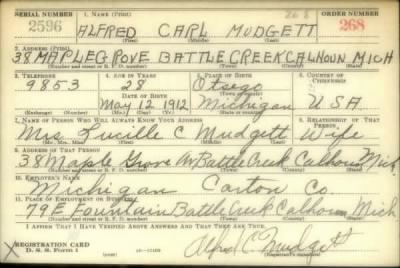 SERIAL NUMBER 1. NAME (Print) ORDER NUMBER
2596 ALFRED CARL MUDGETT 268
(First) (Middle) (Last)
2. ADDRESS (Print)
38 MAPLEGROVE BATTLE CREEK CALHOUN MICH
(Number and street or R. F. D. number) (Town) (County) (State)
3. TELEPHONE 4. AGE IN YEARS 5. PLACE OF BIRTH 6. COUNTRY OF CITIZENSHIP
9853 28 Otsego
DATE OF BIRTH (Town or county)
May 12, 1912 Michigan USA
(Exchange) (Number) (Mo.) (Day) (Yr.) (State or country)
7. NAME OF PERSON WHO WILL ALWAYS KNOW YOUR ADDRESS 8. RELATIONSHIP OF THAT PERSON
Mrs. Lucille C Mudgett Wife
(Mr., Mrs., Miss) (First) (Middle) (Last)
9. ADDRESS OF THAT PERSON
38 Maple Grove Av Battle Creek Calhoun Mich.
(Number and street or R. F. D. number) (Town) (County) (State)
10. EMPLOYER'S NAME
Michigan Carton Co.
11. PLACE OF EMPLOYMENT OR BUSINESS
79 E Fountain Battle Creek Calhoun Mich
(Number and street or R. F. D. number) (Town) (County) (State)
I AFFIRM THAT I HAVE VERIFIED ABOVE ANSWERS AND THAT THEY ARE TRUE.
REGISTRATION CARD
D. S. S. Form 1 Alfred C. Mudgett
(Registrant's signature)